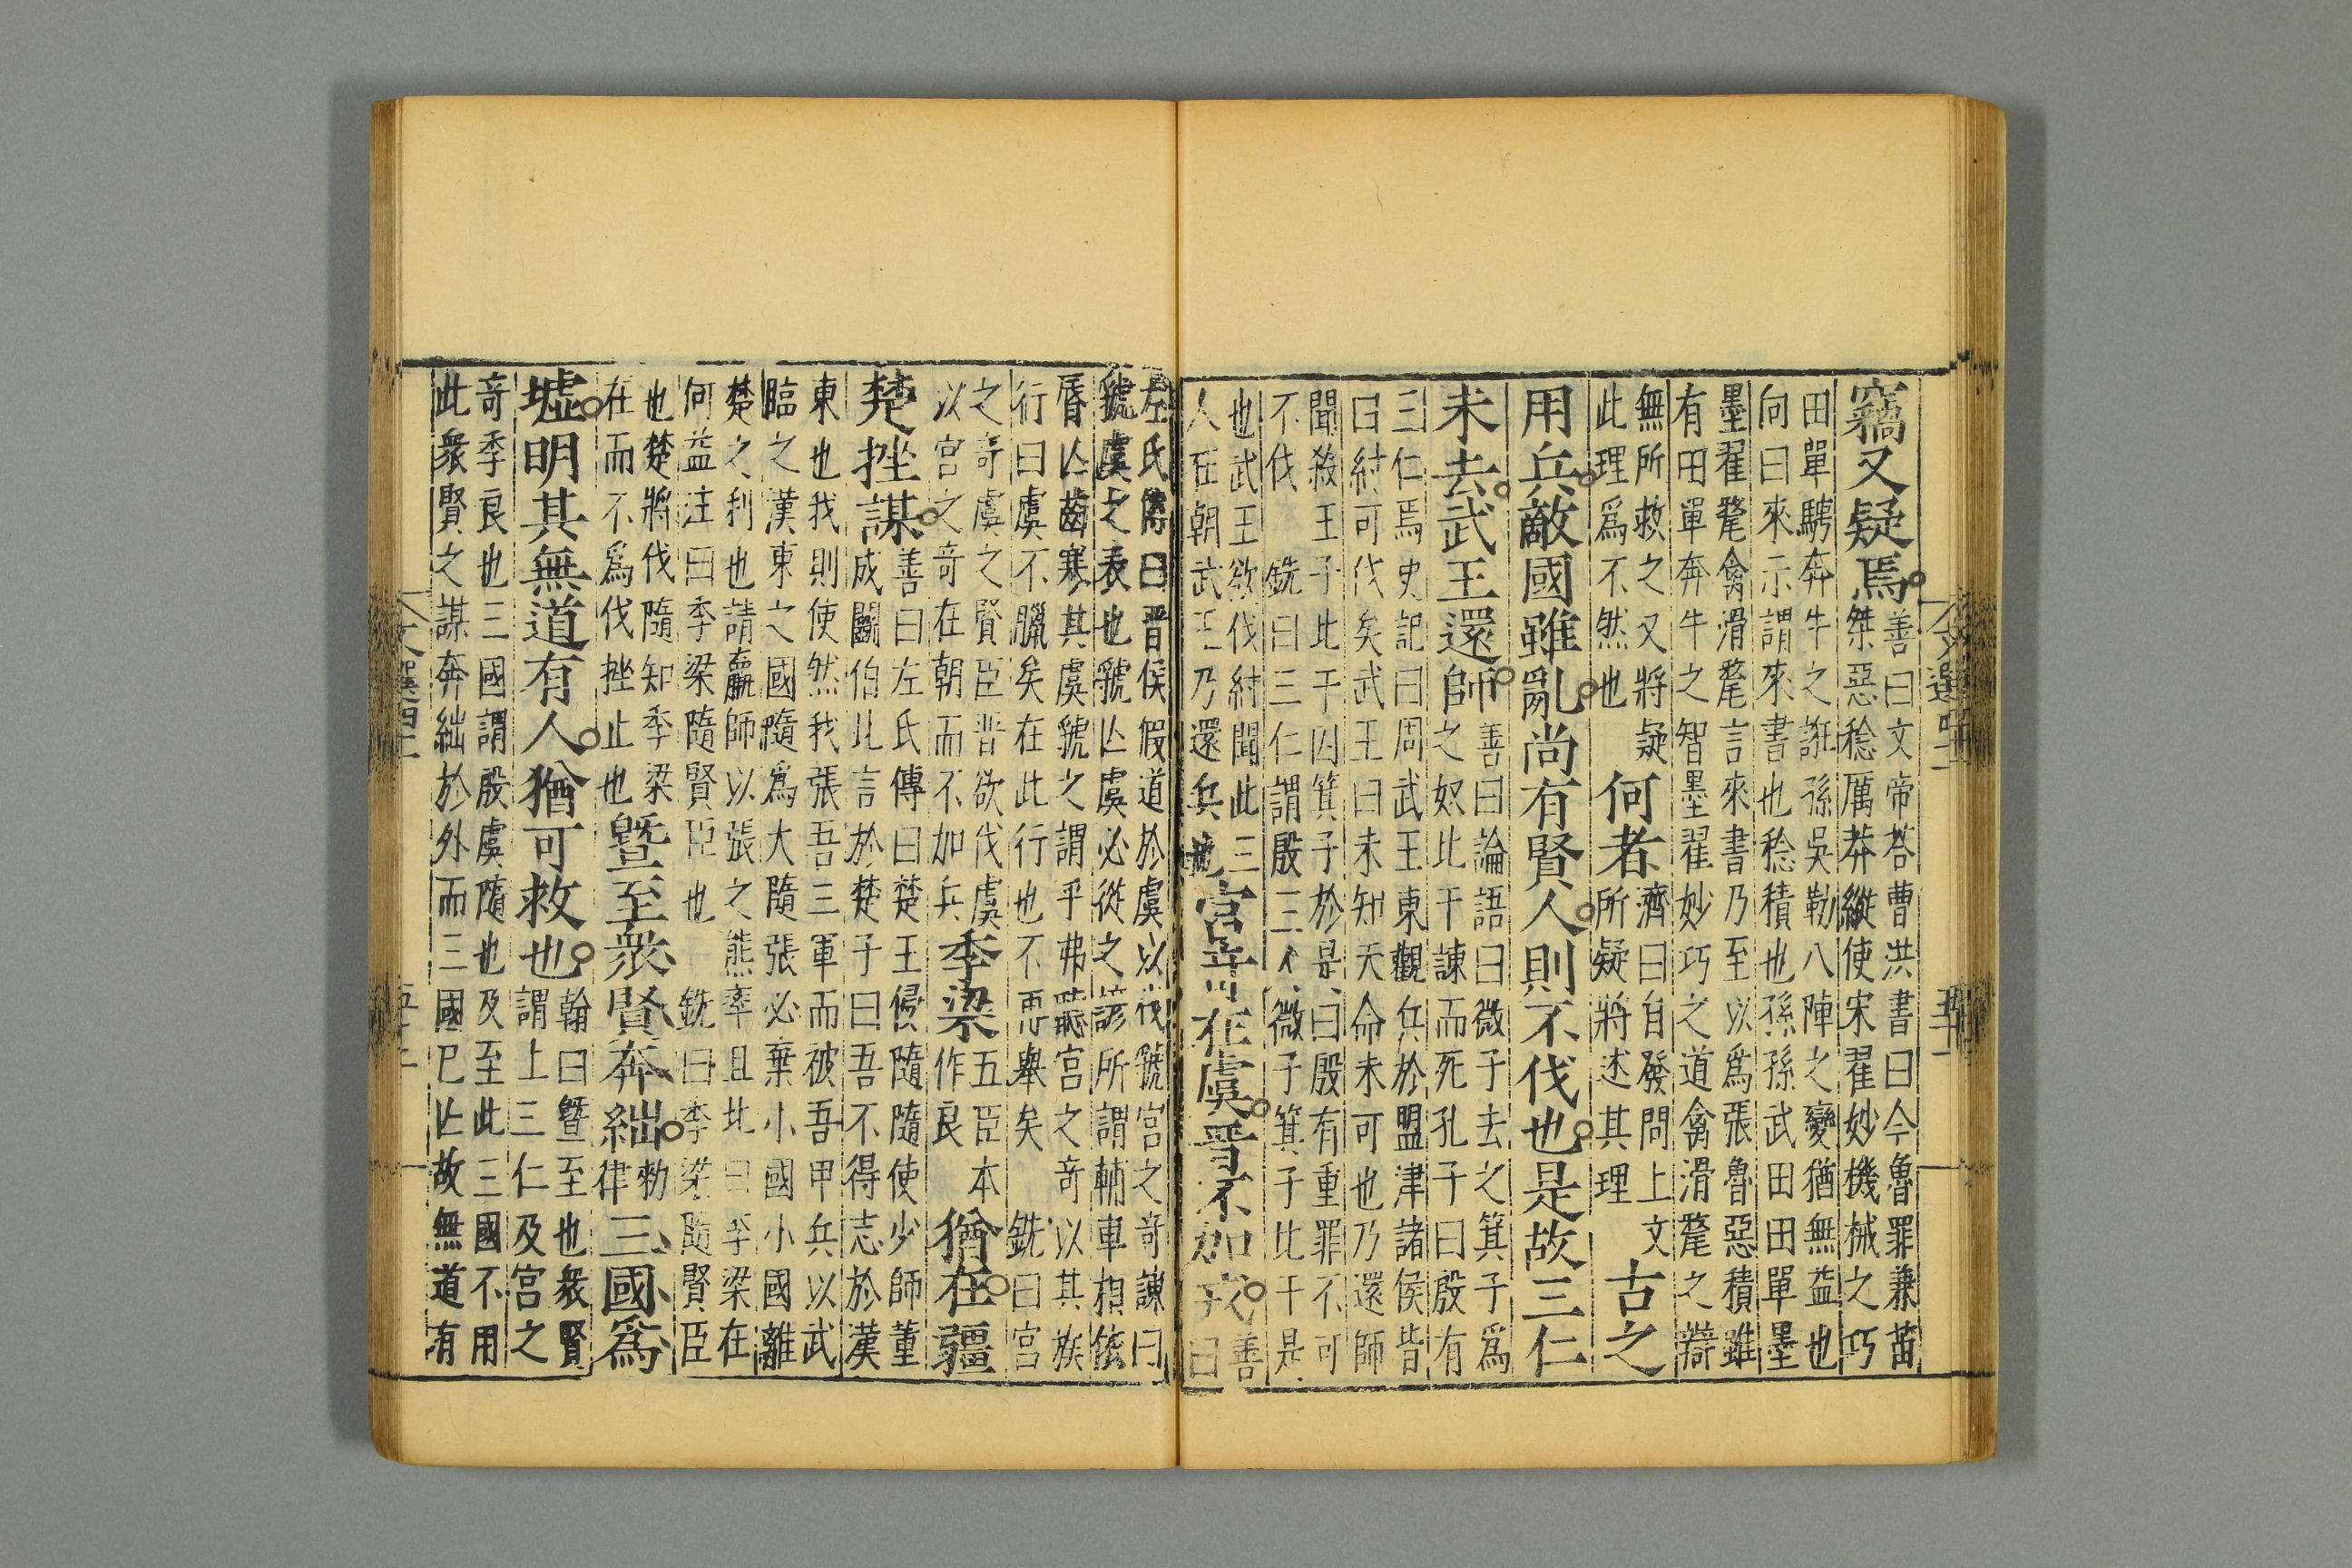 竊又疑焉善曰文帝荅曹洪書曰今魯罪兼苗
桀惡稔厲莽縱使宋翟妙機械之巧
田單騁奔牛之誑孫吳勒八陣之變猶無益也
向曰來示謂來書也稔積也孫孫武田田單墨
墨翟氂禽滑氂言來書乃至以爲張魯惡積雖
有田單奔牛之智墨翟妙巧之道禽滑氂之辯
無所救之又將疑
此理爲不然也
何者濟曰自發問上文
所疑將述其理
古之
用兵敵國雖亂尚有賢人則不伐也是故三仁
未去武王還師善曰論語曰微子去之箕子爲
之奴比干諫而死孔子曰殷有
三仁焉史記曰周武王東觀兵於盟津諸侯皆
曰紂可伐矣武王曰未知天命未可也乃還師
聞殺王子比干囚箕子於是曰殷有重罪不可
不伐 銑曰三仁謂殷三人微子箕子比干是
也武王欲伐紂聞此三
人在朝武王乃還兵也
宮奇在虞晉不加戎善
曰
左氏傳曰晉侯假道於虞以伐虢宮之奇諫曰
虢虞之表也虢亾虞必從之諺所謂輔車相依
脣亾齒寒其虞虢之謂乎弗聽宮之奇以其族
行曰虞不臘矣在此行也不再舉矣 銑曰宮
之奇虞之賢臣晉欲伐虞
以宮之奇在朝而不加兵
季梁五臣本
作良
猶在彊
楚挫謀善曰左氏傳曰楚王侵隨隨使少師董
成鬬伯比言於楚子曰吾不得志於漢
東也我則使然我張吾三軍而被吾甲兵以武
臨之漢東之國隨爲大隨張必棄小國小國離
楚之利也請羸師以張之熊率且比曰季梁在
何益注曰季梁隨賢臣也 銑曰季梁隨賢臣
也楚將伐隨知季梁
在而不爲伐挫止也
曁至衆賢奔絀勑
律
三國爲
墟明其無道有人猶可救也翰曰曁至也衆賢
謂上三仁及宮之
奇季良也三國謂殷虞隨也及至此三國不用
此衆賢之謀奔絀於外而三國已亾故無道有